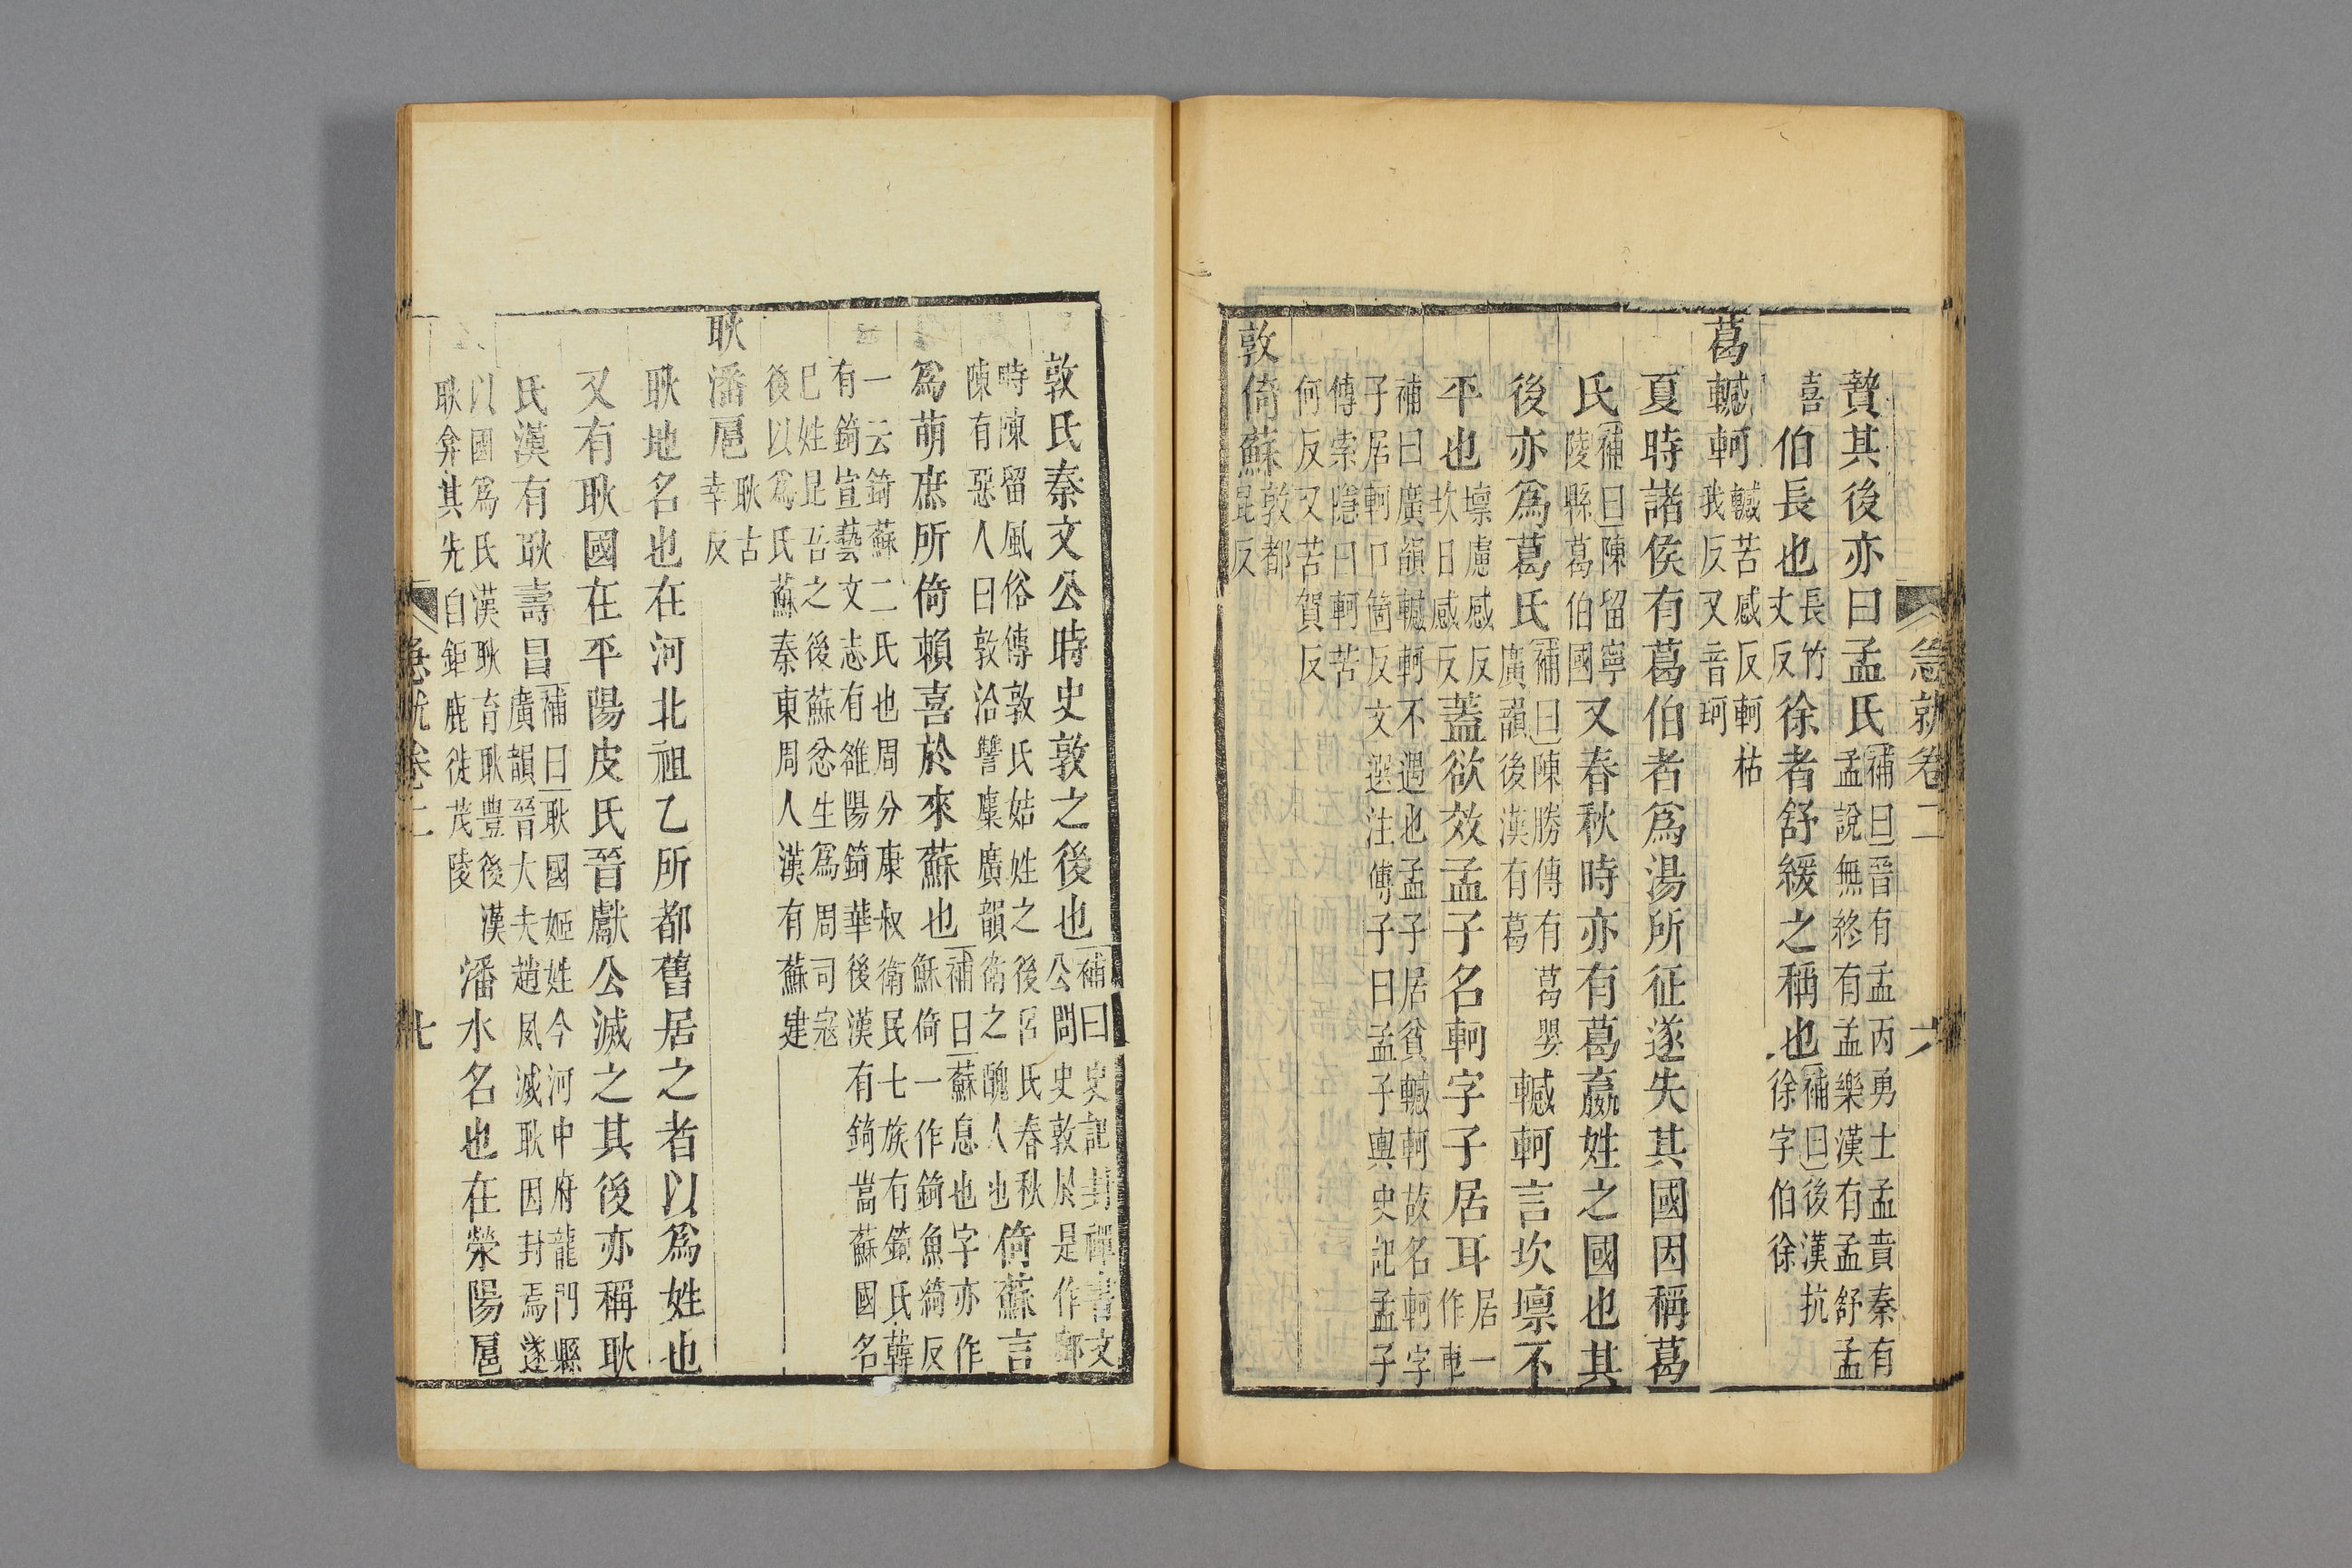 急就卷二 六
贄其後亦曰孟氏補曰晉有孟丙勇士孟賁秦有孟說無終有孟樂漢有孟舒孟
喜伯長也長竹丈反徐者舒緩之稱也補曰後漢抗徐字伯徐
葛轗軻轗苦感反軻枯我反又音珂
夏時諸侯有葛伯者爲湯所征遂失其國因稱葛
氏補曰陳留寧陵縣葛伯國又春秋時亦有葛嬴姓之國也其
後亦爲葛氏補曰陳勝傳有葛嬰廣韻後漢有葛轗軻言坎壈不
平也壈慮感反坎日感反蓋欲效孟子名軻字子居耳居一作車
補曰廣韻轗軻不遇也孟子居貧轗軻故名軻字子居軻口箇反文選注傅子曰孟子輿史記孟子
傳索隱曰軻苦何反又苦賀反
敦倚蘇敦都昆反
敦氏秦文公時史敦之後也補曰史記封禪書文公問史敦於是作鄜
時陳留風俗傳敦氏姞姓之後呂氏春秋陳有惡人曰敦洽讐麋廣韻衛之醜人也倚蘇言
爲萌庶所倚賴喜於來蘇也補曰蘇息也字亦作穌倚一作錡魚綺反
一云錡蘇二氏也周分康叔衛民七族有錡氏韓有錡宣藝文志有雒陽錡華後漢有錡嵩蘇國名
已姓昆吾之後蘇忿生爲周司寇後以爲氏蘇秦東周人漢有蘇建
耿潘扈耿古幸反
耿地名也在河北祖乙所都舊居之者以爲姓也
又有耿國在平陽皮氏晉獻公滅之其後亦稱耿
氏漢有耿壽昌補曰耿國姬姓今河中府龍門縣廣韻晉大夫趙夙滅耿因封焉遂
以國爲氏漢耿育耿豐後漢耿弇其先自鉅鹿徙茂陵潘水名也在滎陽扈
急就卷二 七